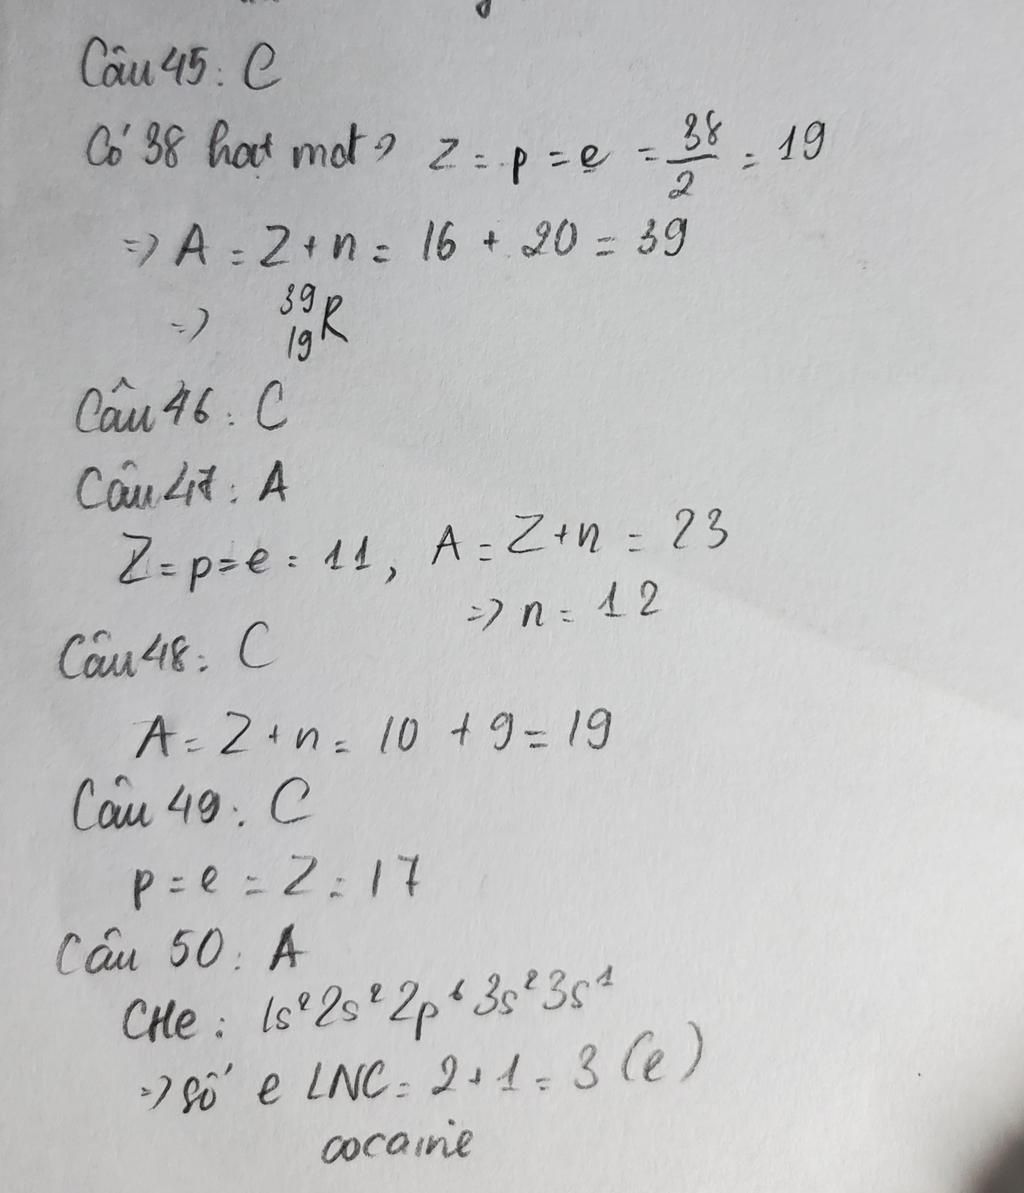 Câu 45: C
Có 38 hạt mđt => Z = p = e = 38/2 = 19
=> A = Z + n = 16 + 20 = 39
=> ³⁹₁₉R
Câu 46: C
Câu 47: A
Z = p = e = 11, A = Z + n = 23
=> n = 12
Câu 48: C
A = Z + n = 10 + 9 = 19
Câu 49: C
p = e = Z = 17
Câu 50: A
CHe: 1s² 2s² 2p⁶ 3s² 3s¹
=> số e LNC = 2 + 1 = 3 (e)
cocaine